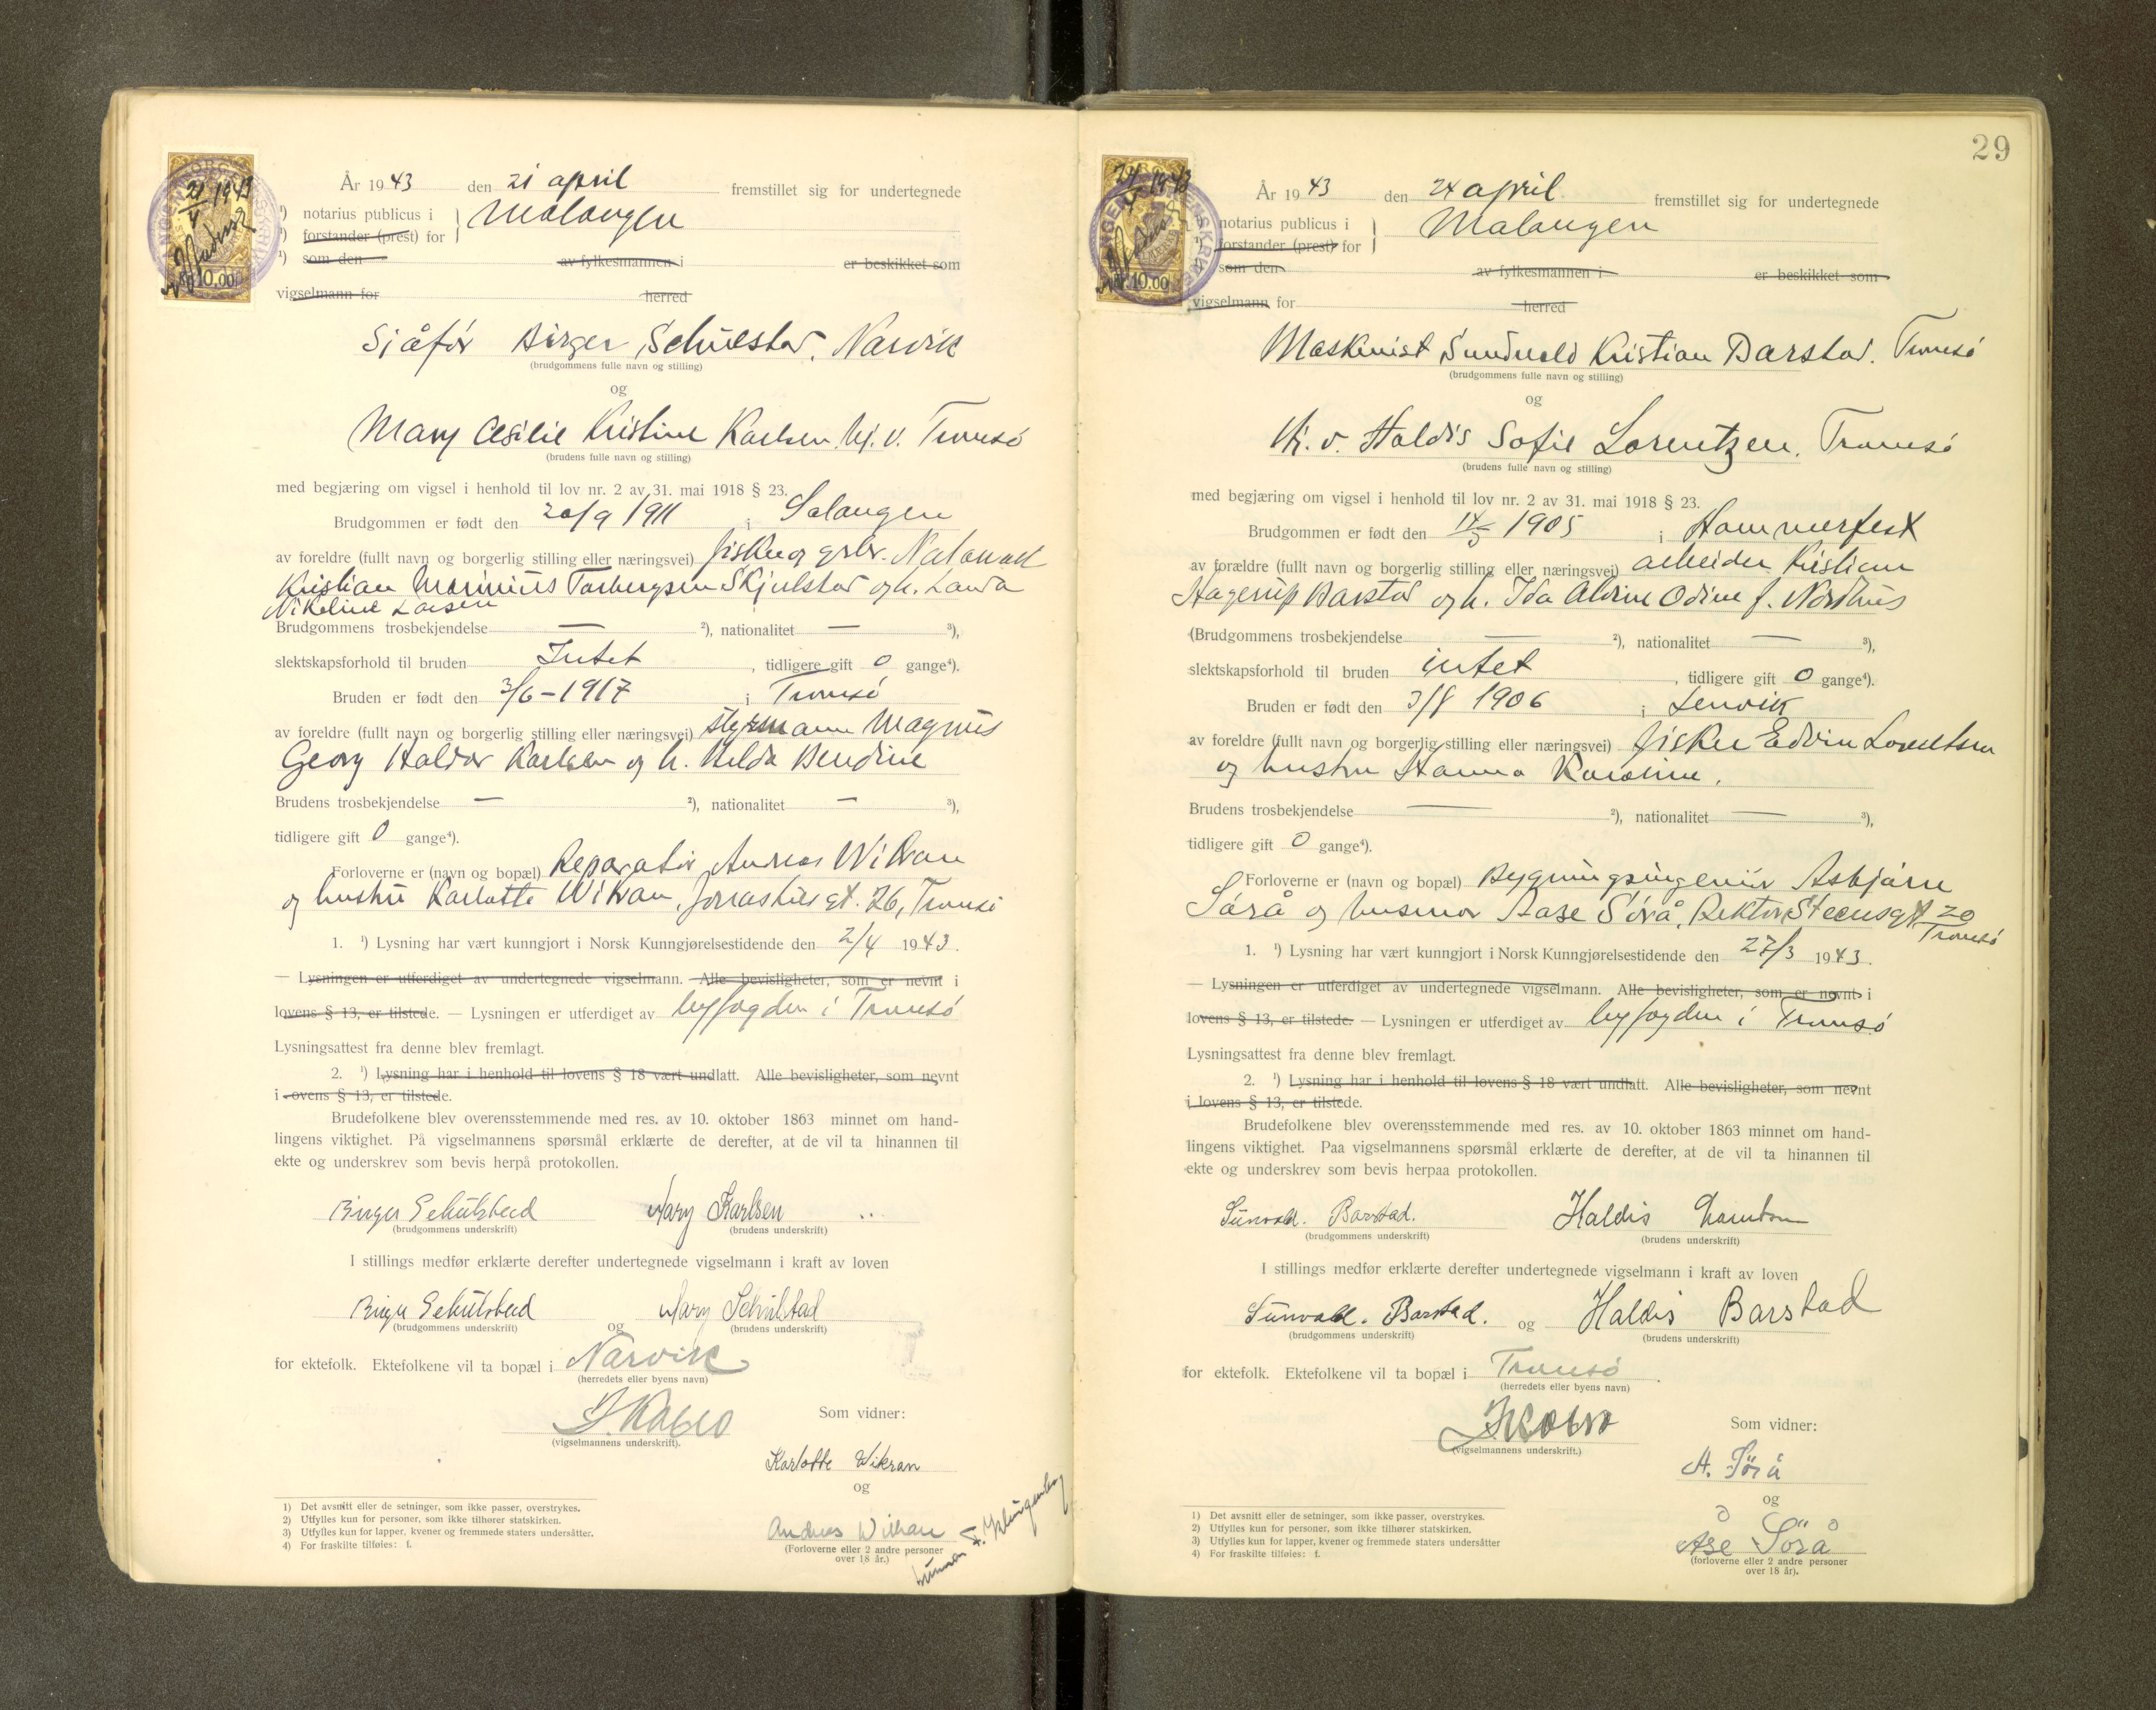 År 1943 den 21 april fremstillet sig for undertegnede
¹) notarius publicus i
¹) forstander (prest) for
Malangen
¹) som den av fylkesmannen i er beskikket som
vigselmann for herred
21/4 1943
10.00
Sjåfør Birger Schulstad, Narvik
(brudgommens fulle navn og stilling)
og
Mary Cesilie Kristine Karlsen, hj. v. Tromsø
(brudens fulle navn og stilling)
med begjæring om vigsel i henhold til lov nr. 2 av 31. mai 1918 § 23.
Brudgommen er født den 20/9 1911 i Salangen
av foreldre (fullt navn og borgerlig stilling eller næringsvei) fisker og grbr. Natanael
Kristian Marinius Torbergsen Skjulstad og h. Laura
Nikoline Larsen
Brudgommens trosbekjendelse — ²), nationalitet — ³),
slektskapsforhold til bruden Intet, tidligere gift 0 gange⁴).
Bruden er født den 3/6 - 1917 i Tromsø
av foreldre (fullt navn og borgerlig stilling eller næringsvei) styrmann Magnus
Georg Haldor Karlsen og h. Hilda Bendine
Brudens trosbekjendelse — ²), nationalitet — ³),
tidligere gift 0 gange⁴).
Forloverne er (navn og bopæl) Reparatør Andreas Wikran
og hustru Karlotte Wikran, Jonas Lies gt. 26, Tromsø
1. ¹) Lysning har vært kunngjort i Norsk Kunngjørelsestidende den 2/4 1943.
— Lysningen er utferdiget av undertegnede vigselmann. Alle bevisligheter, som er nevnt i
lovens § 13, er tilstede. — Lysningen er utferdiget av byfogden i Tromsø
Lysningsattest fra denne blev fremlagt.
2. ¹) Lysning har i henhold til lovens § 18 vært undlatt. Alle bevisligheter, som nevnt
i lovens § 13, er tilstede.
Brudefolkene blev overensstemmende med res. av 10. oktober 1863 minnet om hand-
lingens viktighet. På vigselmannens spørsmål erklærte de derefter, at de vil ta hinannen til
ekte og underskrev som bevis herpå protokollen.
Birger Schulstad Mary Karlsen
(brudgommens underskrift) (brudens underskrift)
I stillings medfør erklærte derefter undertegnede vigselmann i kraft av loven
Birger Schulstad og Mary Schulstad
(brudgommens underskrift) (brudens underskrift)
for ektefolk. Ektefolkene vil ta bopæl i Narvik
(herredets eller byens navn)
(vigselmannens underskrift).
Som vidner:
Karlotte Wikran
og
Andreas Wikran
(Forloverne eller 2 andre personer
over 18 år.)
1) Det avsnitt eller de setninger, som ikke passer, overstrykes.
2) Utfylles kun for personer, som ikke tilhører statskirken.
3) Utfylles kun for lapper, kvener og fremmede staters undersåtter.
4) For fraskilte tilføies: f.
29
År 1943 den 24 april fremstillet sig for undertegnede
notarius publicus i
¹) forstander (prest) for
Malangen
som den av fylkesmannen i er beskikket som
vigselmann for herred
24/4 1943
10.00
Maskinist Sundvald Kristian Barstad. Tromsø
(brudgommens fulle navn og stilling)
og
Hj. v. Haldis Sofie Lorentzen, Tromsø
(brudens fulle navn og stilling)
med begjæring om vigsel i henhold til lov nr. 2 av 31. mai 1918 § 23.
Brudgommen er født den 14/5 1905 i Hammerfest
av forældre (fullt navn og borgerlig stilling eller næringsvei) arbeider Kristian
Hagerup Barstad og h. Ida Alvine Odine f. Nordhus
(Brudgommens trosbekjendelse — ²), nationalitet — ³),
slektskapsforhold til bruden intet, tidligere gift 0 gange⁴).
Bruden er født den 3/8 1906 i Lenvik
av foreldre (fullt navn og borgerlig stilling eller næringsvei) fisker Edvin Lorentsen
og hustru Hanna Karoline.
Brudens trosbekjendelse — ²), nationalitet — ³),
tidligere gift 0 gange⁴).
Forloverne er (navn og bopæl) Bygningsingeniør Asbjørn
Sørå og husmor Aase Sørå, Rektor Steensgt 20
Tromsø
1. ¹) Lysning har vært kunngjort i Norsk Kunngjørelsestidende den 27/3 1943.
— Lysningen er utferdiget av undertegnede vigselmann. Alle bevisligheter, som er nevnt i
lovens § 13, er tilstede. — Lysningen er utferdiget av byfogden i Tromsø
Lysningsattest fra denne blev fremlagt.
2. ¹) Lysning har i henhold til lovens § 18 vært undlatt. Alle bevisligheter, som nevnt
i lovens § 13, er tilstede.
Brudefolkene blev overensstemmende med res. av 10. oktober 1863 minnet om hand-
lingens viktighet. Paa vigselmannens spørsmål erklærte de derefter, at de vil ta hinannen til
ekte og underskrev som bevis herpaa protokollen.
Sunvald. Barstad. Haldis Lorentzen
(brudgommens underskrift) (brudens underskrift)
I stillings medfør erklærte derefter undertegnede vigselmann i kraft av loven
Sunvald. Barstad. og Haldis Barstad
(brudgommens underskrift) (brudens underskrift)
for ektefolk. Ektefolkene vil ta bopæl i Tromsø.
(herredets eller byens navn)
(vigselmannens underskrift.)
Som vidner:
A. Sörå
og
Åse Sörå
(forloverne eller 2 andre personer
over 18 år).
1) Det avsnitt eller de setninger, som ikke passer, overstrykes.
2) Utfylles kun for personer, som ikke tilhører statskirken.
3) Utfylles kun for lapper, kvener og fremmede staters undersåtter
4) For fraskilte tilføies: f.